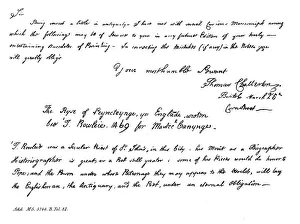 Sir
Being versed a little in antiquitys, I have met with several Curious Manuscripts among
which the following may be of Service to you in any future Edition of your truly
entertaining Anecdotes of Painting. In correcting the Mistakes (if any) in the Notes you
will greatly oblige
Your most humble Servant
Thomas Chatterton
Bristol March 25th
Corn Street
The Ryse of Peyncteynge, yn Englande, wroten
bie T. Rowleie. 1469 for Mastre Canynge
T. Rowleie was a Secular Priest of St. John's, in this City. his Merit as a Biographer
Historiographer is great, as a Poet still greater: some of his Pieces would do honor to
Pope; and the Person under whose Patronage they may appear to the World, will lay
the Englishman, the Antiquary, and the Poet, under an eternal Obligation
Add. MS.